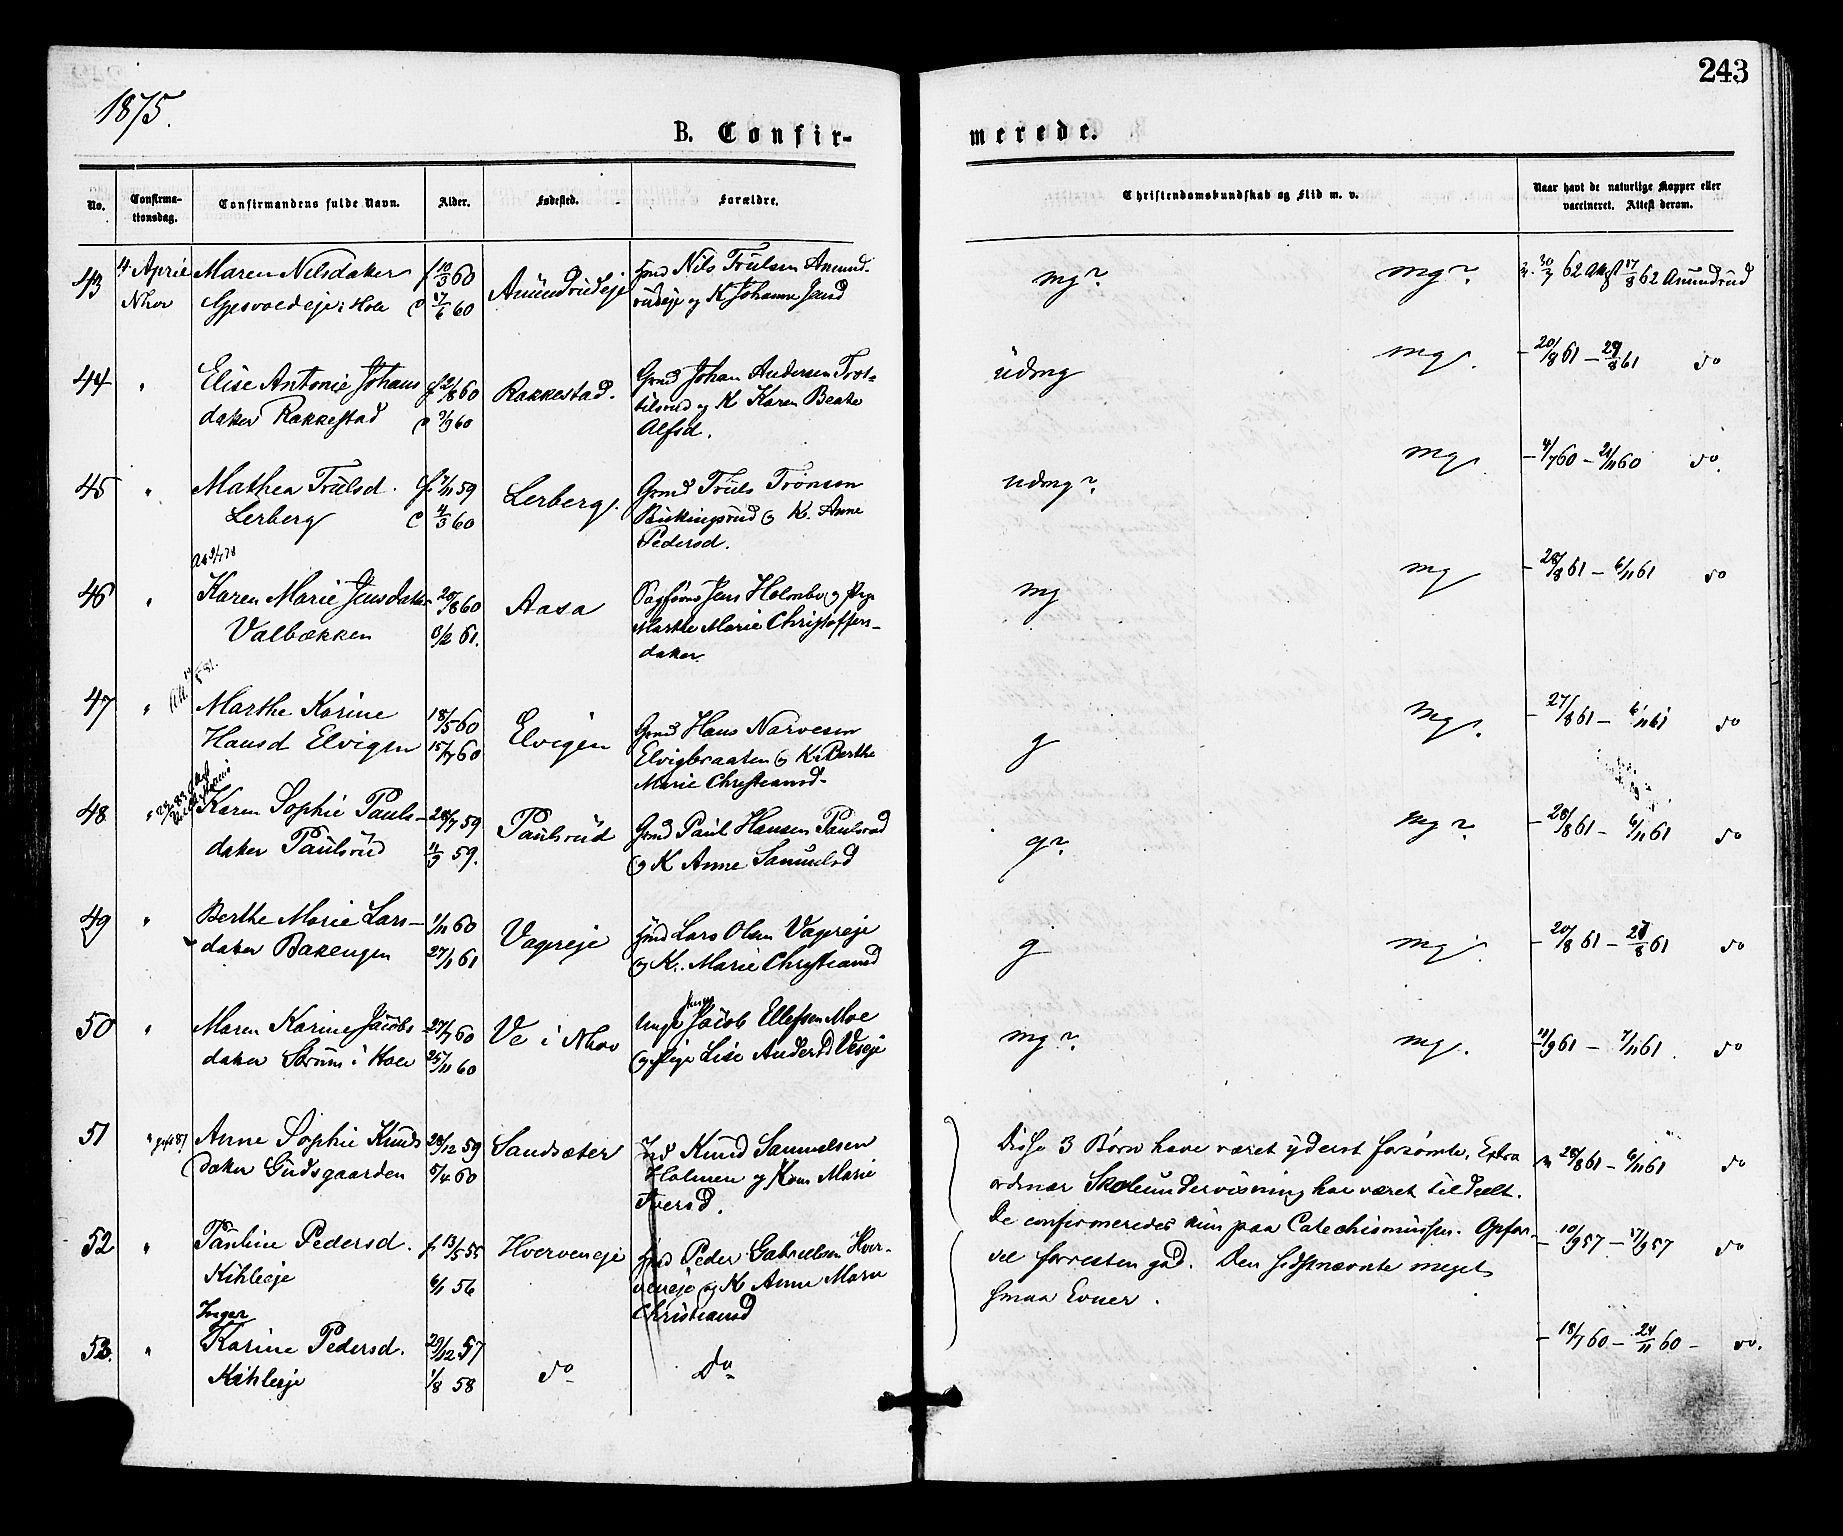 243
1875.
B. Confirmerede.
No.
Confirmationsdag.
Confirmandens fulde Navn.
Alder.
Fødested.
Forældre.
Christendomskundskab og Flid m. v.
Naar havt de naturlige Kopper eller
vaccineret. Attest derom.
43 4 April Maren Nilsdater f 10/3 60 Amundrudeje Nils Trulsen Amund- mg? mg? 30/7 62 Att 17/8 62 Amundrud
Nhov i Hole C 17/6 60 rudeje og K Johanne Jansd
44 " Elise Antonie Johans f 2/8 60 Rakkestad. Grmd Johan Andersen Trot- udmg mg. - 20/8 61 - 29/8 61 do
dater Rakkestad C 9/9 60 tilsrud og K Karen Beate
Alfsd.
45 " Mathea Trulsd. f. 7/11 59 Lerberg. Grmd Truls Tronsen udmg? mg - 4/7 60 - 21/11 60 do.
Lerberg C 4/3 60 og K. Anne
Pedersd.
46 " Karen Marie Jensdater 20/8 60 Aasa Jens Holmbo og Pige mg mg - 28/8 61 - 6/11 61 do
Valbækken 3/2 61. Marthe Marie Christoffers-
dater.
47 " Marthe Karine 18/5 60 Elvigen Grmd Hans Narvesen g mg. - 27/8 61 - 6/11 61 do
Hansd Elvigen 15/7 60 Elvigbraaten og K. Berthe
Marie Christiansd.
48 " Karen Sophie Pauls- 28/7 59 Paulsrud Grmd Paul Hansen Paulsrud g? mg? - 28/8 61 - 6/11 61 do
dater Paulsrud 11/9 59. og K Anne Samuelsd
49 " Berthe Marie Lars- 1/11 60 Vagereje Lars Olsen Vagereje g mg. - 20/8 61 - 27/8 61 do
dater Bakengen 27/1 61 og K. Marie Christiansd
50 " Maren Karine Jacobs 27/7 60 Ve i Nhov Ungk Jacob Ellefsen Moe mg? mg. 11/9 61 - 7/11 61. do
dater Strøm i Hole 25/11 60 og Pige Lise Andersd Veseje
51 " Anne Sophie Knuds 28/12 59 Sandsæter Knud Samuelsen Disse 3 Børn have været yderst forsømte. Extra 28/8 61 - 6/11 61 do
dater Gudsgaarden 5/4 60 Holmen og Kone Marie ordinær Skoleundervisning har været tildeelt.
Iversd. De confirmeredes kun paa Catechismussen. Opfør-
52 " Pauline Pedersd. f. 13/5 55 Hverveneje Peder Gabrielsen Hver- sel forresten god. Den sidstnævnte meget - 10/9 57 - 17/9 57 do
Kihleeje 6/1 56 veneje og K Anne Marie smaa Evner.
Christiansd
Inger
53. " Karine Pedersd. 29/12 57 do Do - 18/7 60 - 24/11 60 - do.
Kihleeje 1/8 58